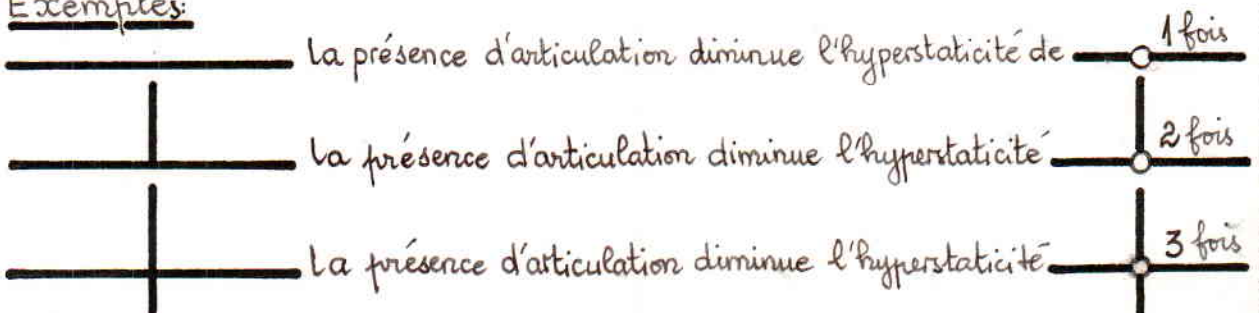 Exemples:
la présence d'articulation diminue l'hyperstaticité de 1 fois
la présence d'articulation diminue l'hyperstaticité 2 fois
la présence d'articulation diminue l'hyperstaticité 3 fois